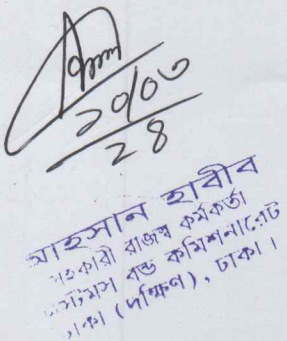 ২০/০৩
২৪
আহসান হাবীব
সহকারী রাজস্ব কর্মকর্তা
কাস্টমস বন্ড কমিশনারেট
ঢাকা (দক্ষিণ), ঢাকা।